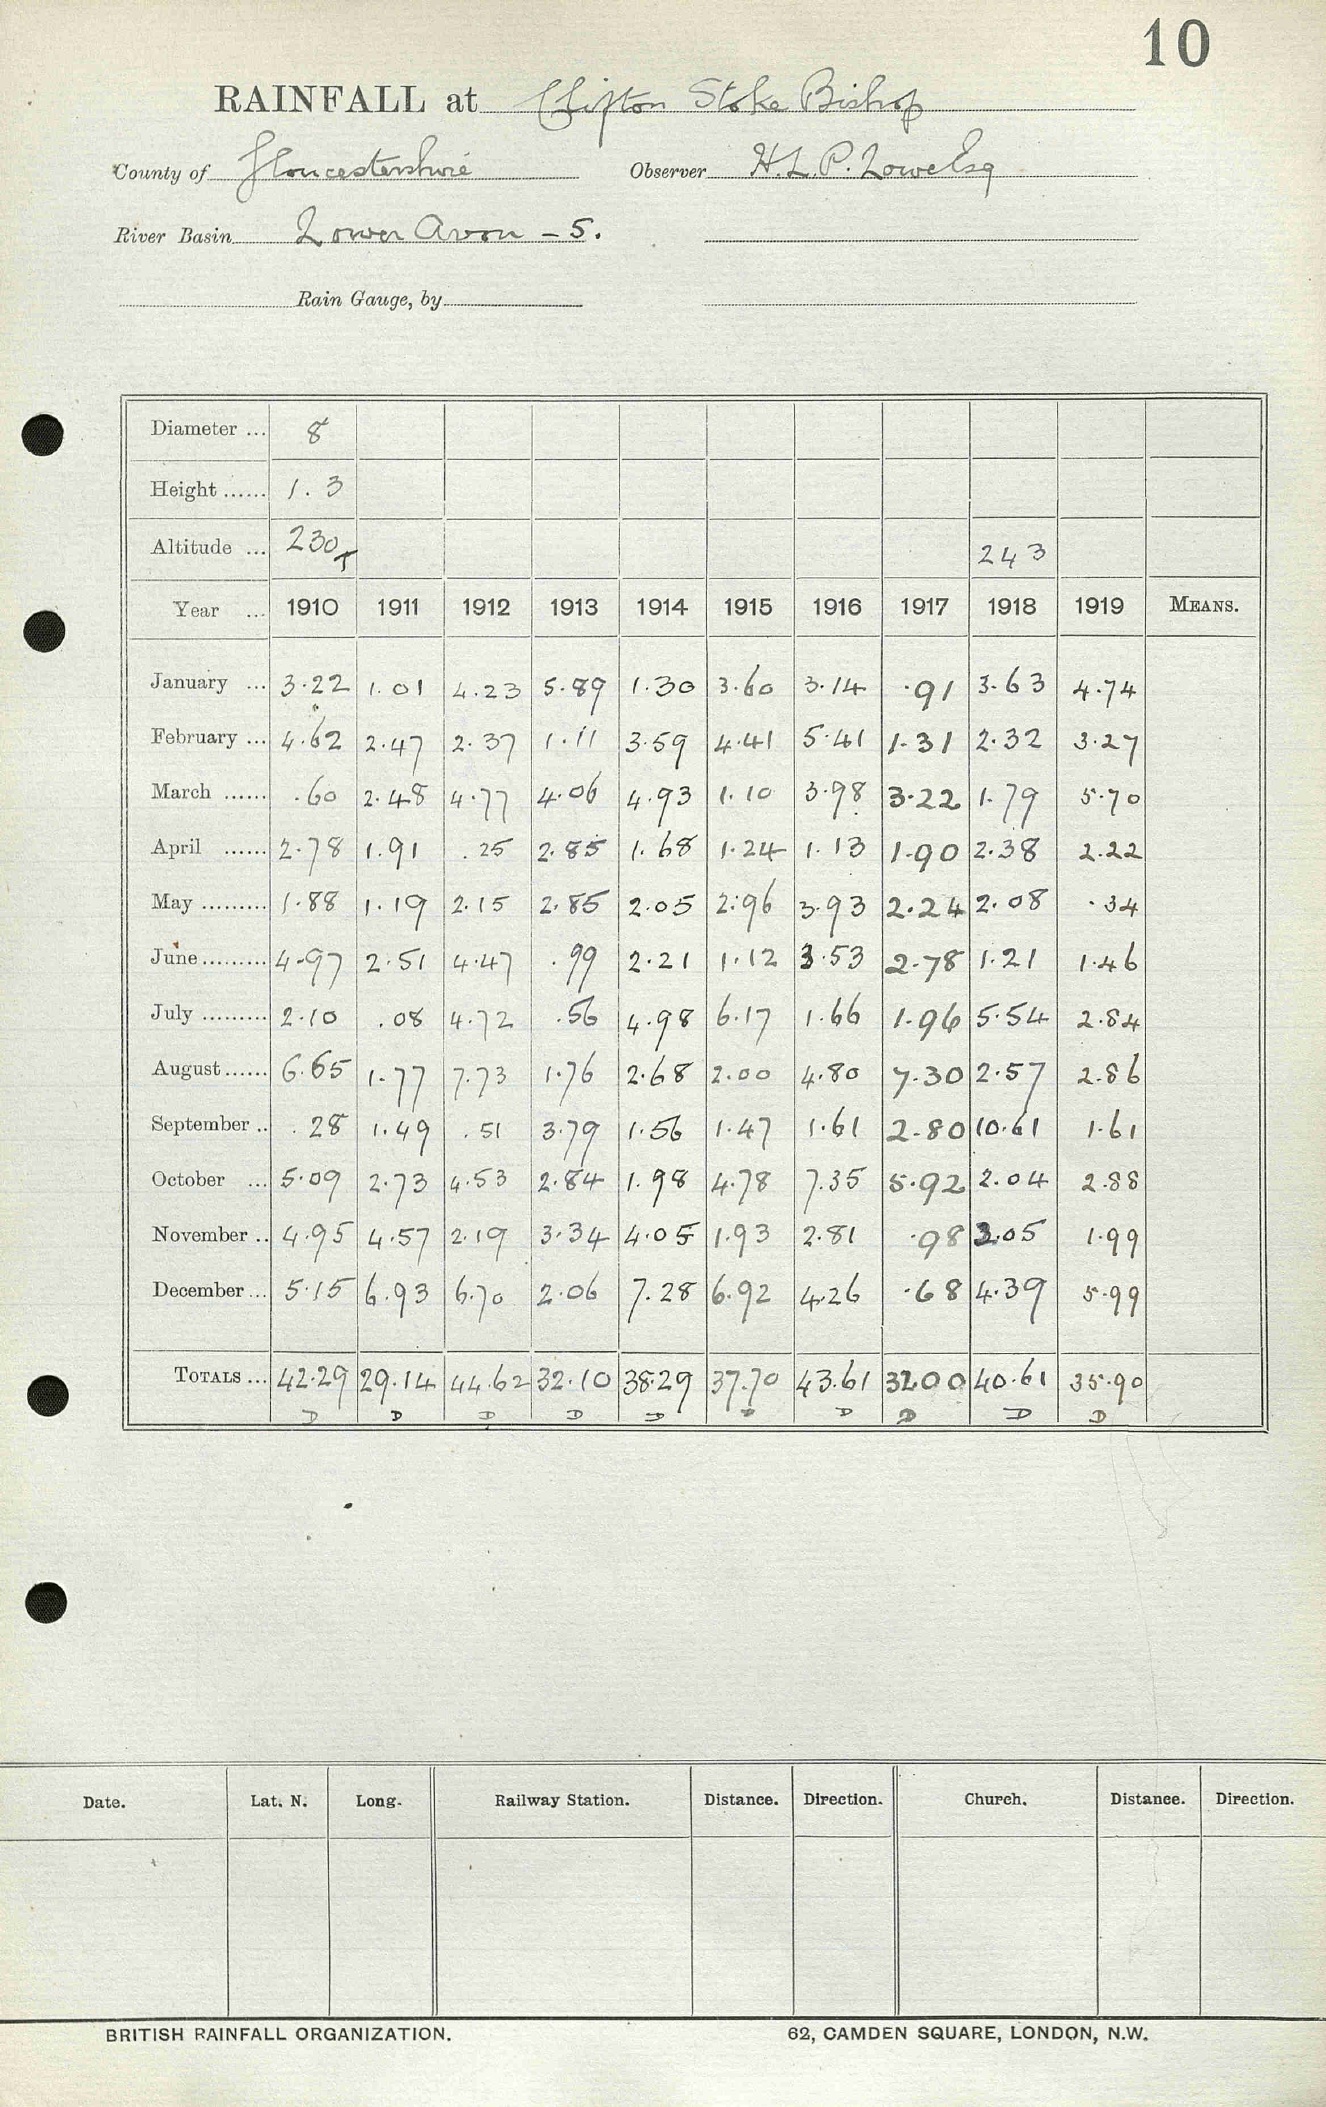 10
RAINFALL at Clifton Stoke Bishop
County of Gloucestershire Observer H.L.P. Lowe Esq
River Basin Lower Avon - 5.
Rain Gauge, by
Diameter ... 8
Height ...... 1.3
Altitude ... 230T 243
Year ... 1910 1911 1912 1913 1914 1915 1916 1917 1918 1919 MEANS.
January ... 3.22 1.01 4.23 5.89 1.30 3.60 3.14 .91 3.63 4.74
February ... 4.62 2.47 2.37 1.11 3.59 4.41 5.41 1.31 2.32 3.27
March ...... .60 2.48 4.77 4.06 4.93 1.10 3.98 3.22 1.79 5.70
April ...... 2.78 1.91 .25 2.85 1.68 1.24 1.13 1.90 2.38 2.22
May ......... 1.88 1.19 2.15 2.85 2.05 2.96 3.93 2.24 2.08 .34
June ......... 4.97 2.51 4.47 .99 2.21 1.12 3.53 2.78 1.21 1.46
July ......... 2.10 .08 4.72 .56 4.98 6.17 1.66 1.96 5.54 2.84
August ...... 6.65 1.77 7.73 1.76 2.68 2.00 4.80 7.30 2.57 2.86
September .. .28 1.49 .51 3.79 1.56 1.47 1.61 2.80 10.61 1.61
October ... 5.09 2.73 4.53 2.84 1.98 4.78 7.35 5.92 2.04 2.88
November .. 4.95 4.57 2.19 3.34 4.05 1.93 2.81 .98 2.05 1.99
December ... 5.15 6.93 6.70 2.06 7.28 6.92 4.26 .68 4.39 5.99
TOTALS ... 42.29 29.14 44.62 32.10 38.29 37.70 43.61 32.00 40.61 35.90
D D D D D D D D D D
Date. Lat. N. Long. Railway Station. Distance. Direction. Church. Distance. Direction.
BRITISH RAINFALL ORGANIZATION. 62, CAMDEN SQUARE, LONDON, N.W.